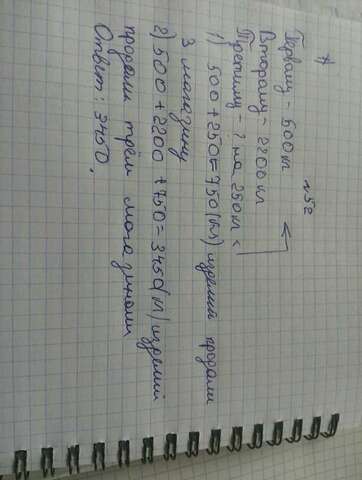 №52
Первому - 500 кг
Второму - 2200 кг
Третиму - ? на 250кг <
1) 500+250=750(кг) изделий продали
3 магазину
2) 500+2200+750=3450(кг) изделий
продали трём магазинам
Ответ: 3450.